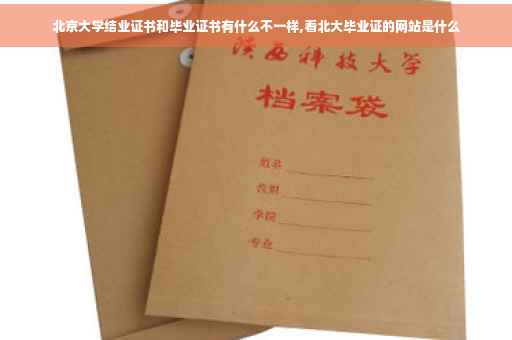 北京大学结业证书和毕业证书有什么不一样,看北大毕业证的网站是什么
陕西科技大学
档案袋
姓名
学院
专业